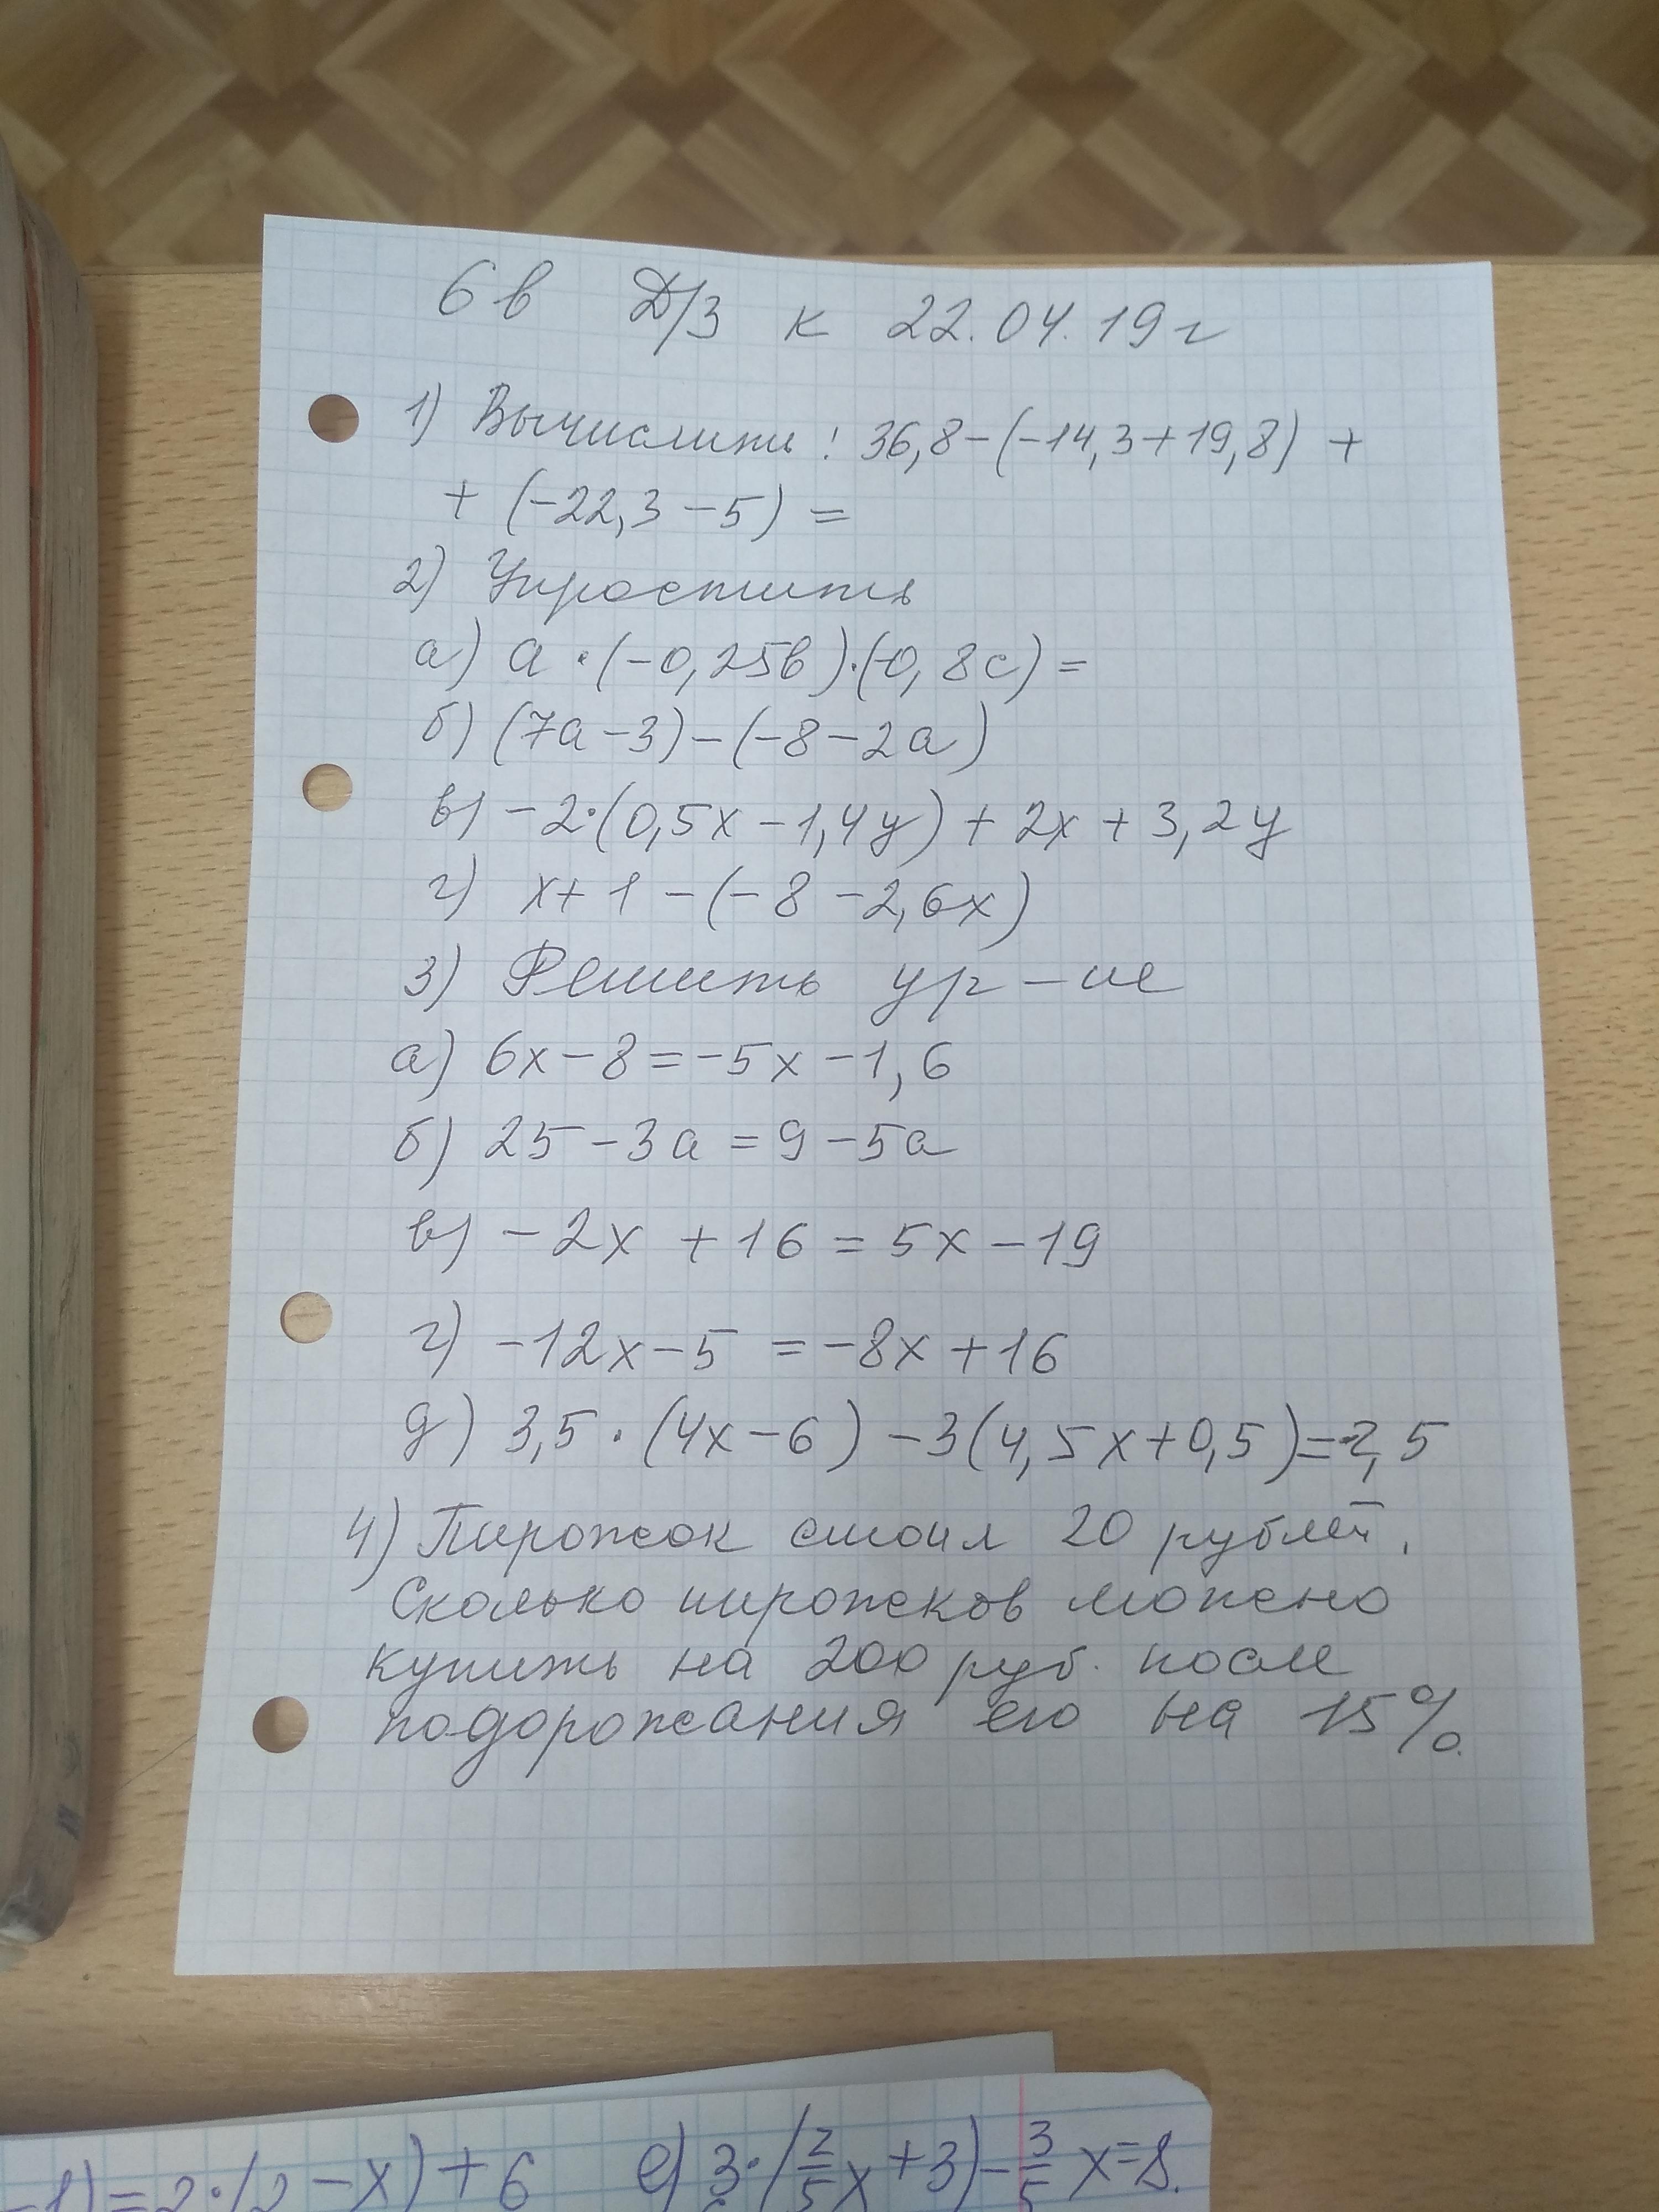 6 в Д/З к 22.04.19 г
1) Вычислить: 36,8-(-14,3+19,8) +
+ (-22,3-5) =
2) Упростить
а) a·(-0,25в)·(-0,8c) =
б) (7a-3)-(-8-2a)
в) -2·(0,5x-1,4y)+2x+3,2y
г) x+1-(-8-2,6x)
3) Решить ур-ие
а) 6x-8=-5x-1,6
б) 25-3a=9-5a
в) -2x+16=5x-19
г) -12x-5=-8x+16
д) 3,5·(4x-6)-3(4,5x+0,5)=-2,5
4) Пирожок стоил 20 рублей.
Сколько пирожков можно
купить на 200 руб. после
подорожания его на 15%.
-1)=2·(2-x)+6 е) 3·(2/5x+3)-3/5x=8.